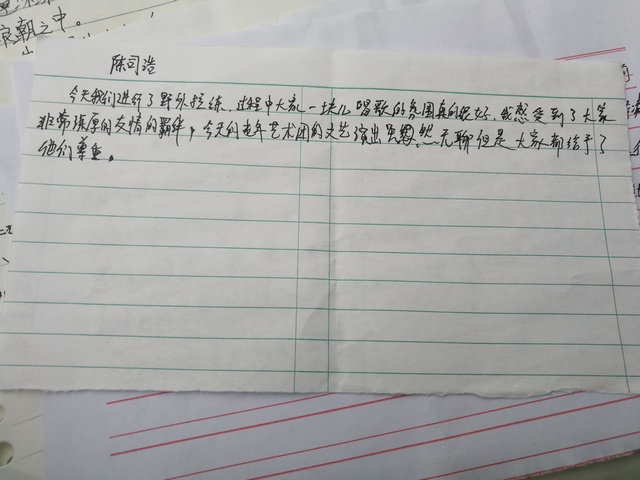 浪朝之中。
陈司浩
今天我们进行了野外拉练,过程中大家一块儿唱歌的氛围真的很好,我感受到了大家
非常深厚的友情的羁绊,今天的老年艺术团的文艺演出虽然无聊但是大家都给予了
他们尊重。